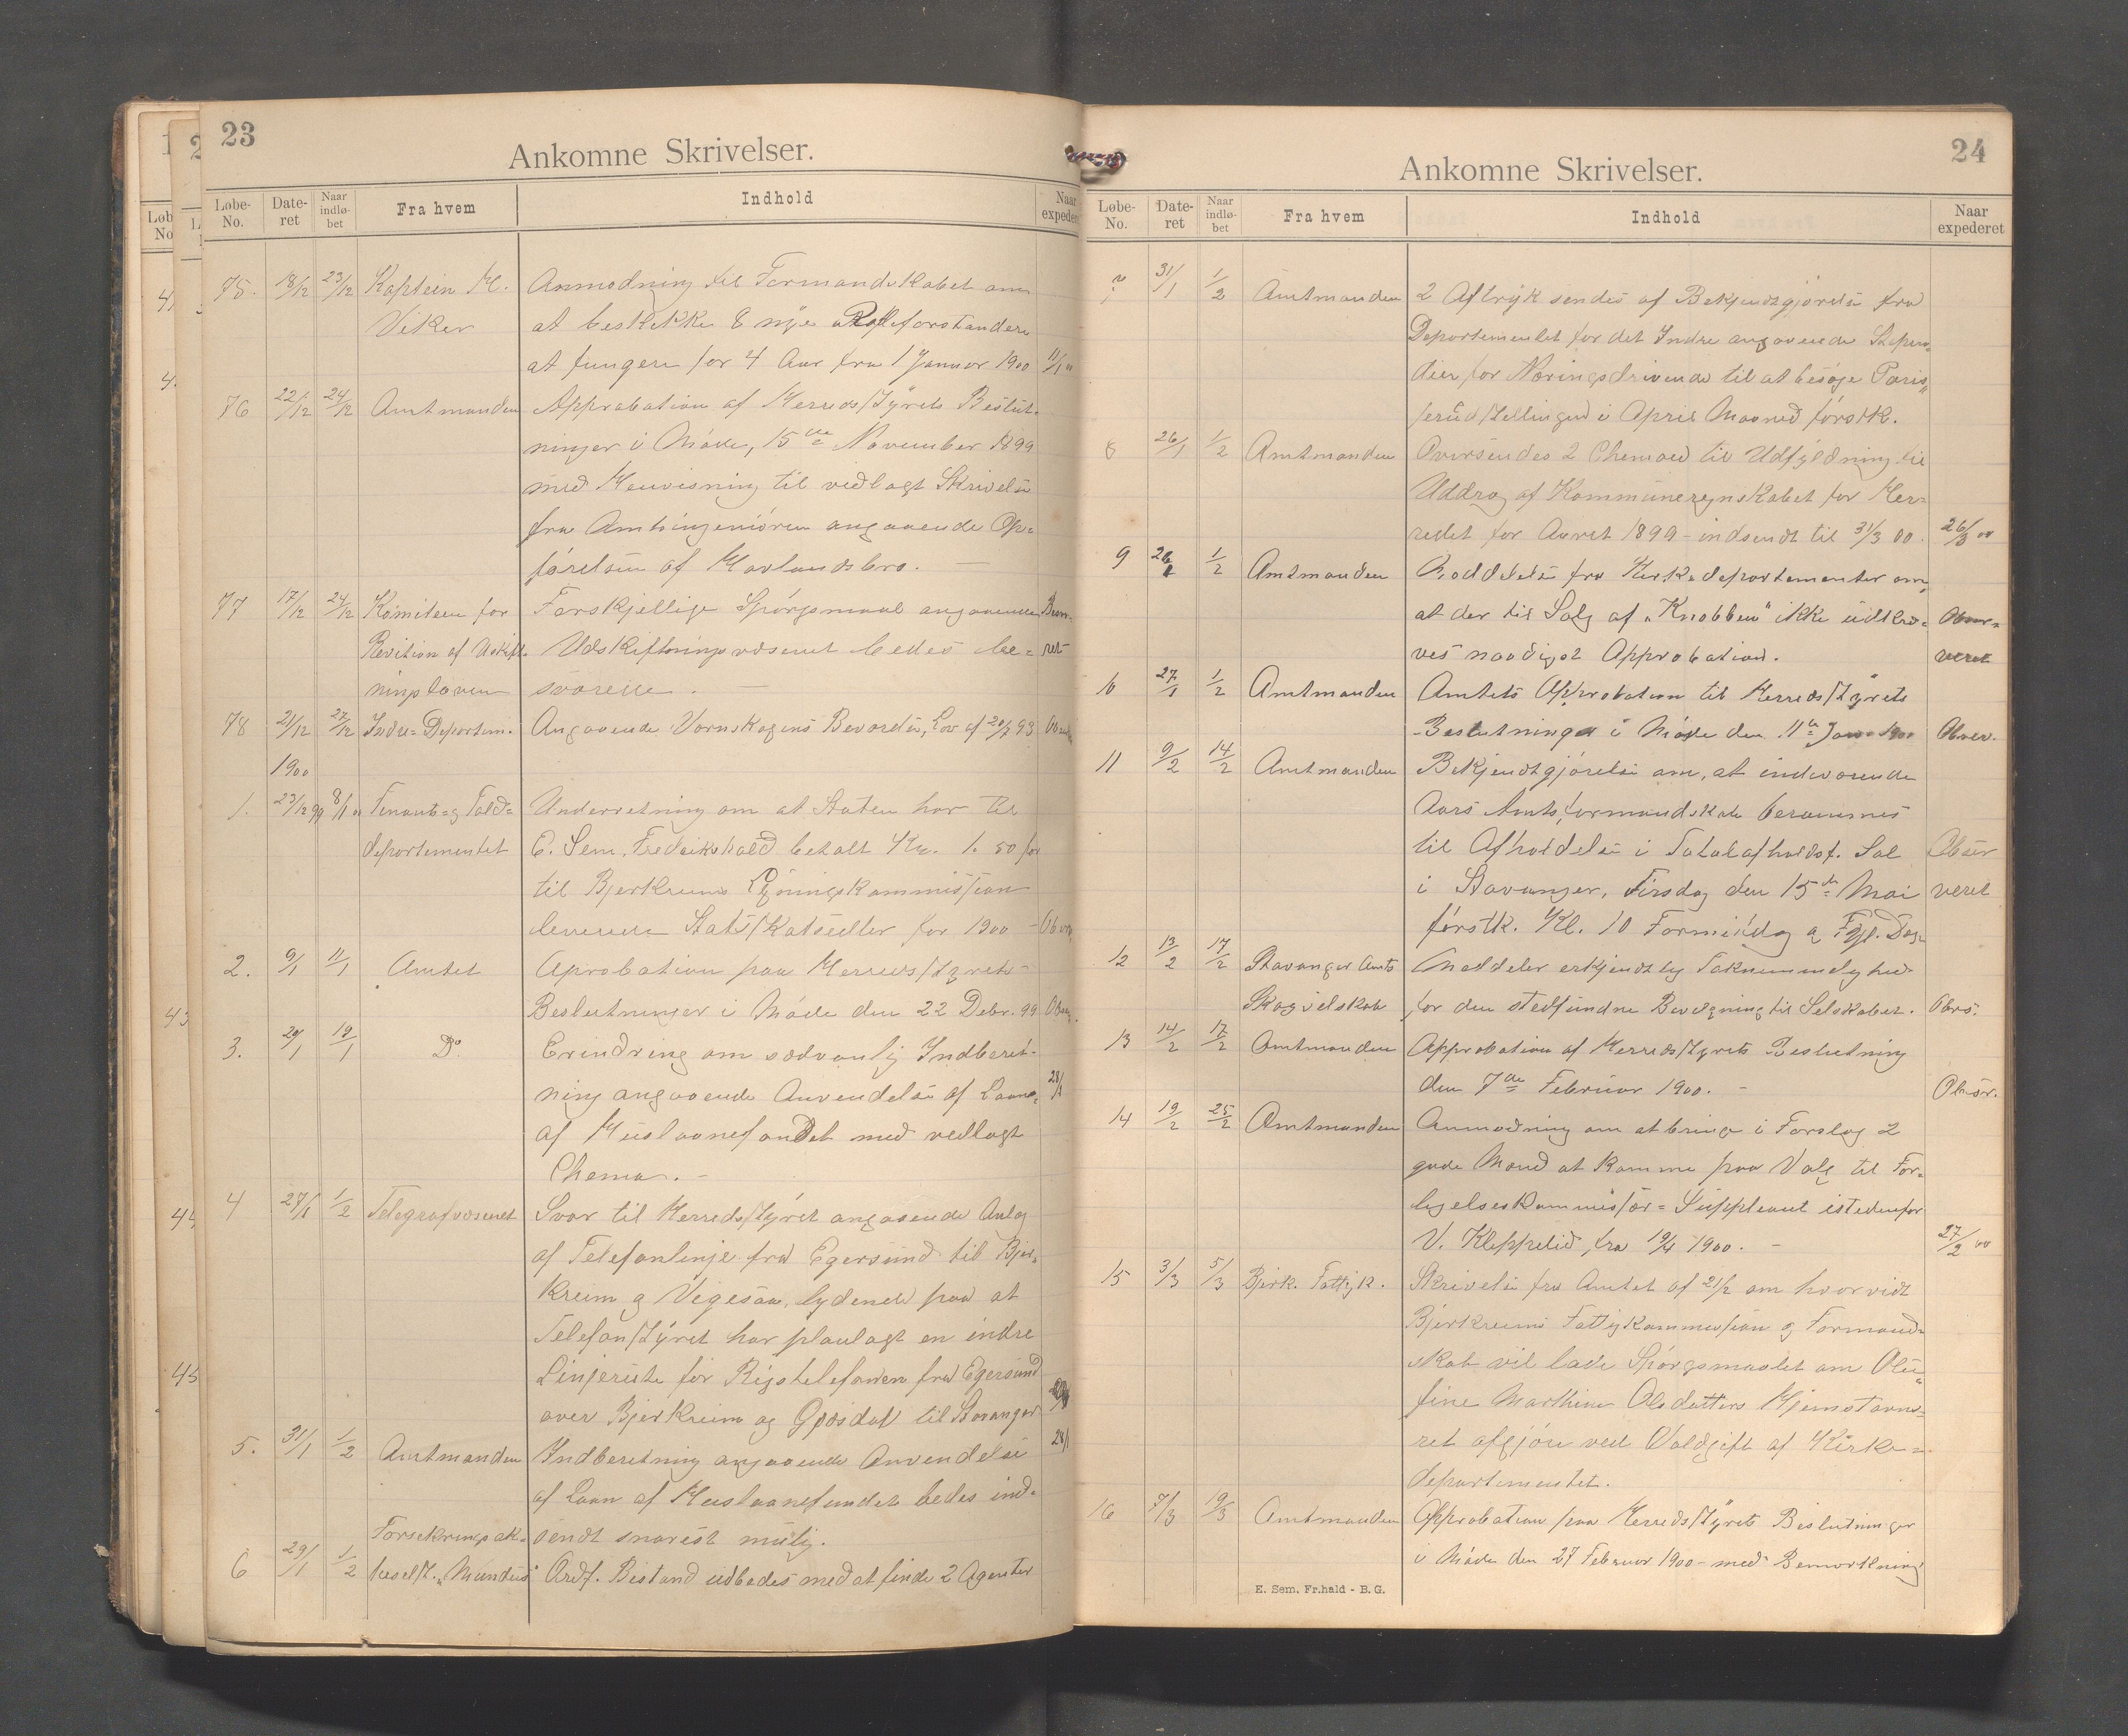 23
Ankomne Skrivelser.
Løbe-No. Dateret Naar indløbet Fra hvem Indhold Naar expederet
75. 18/12 23/12 Kaptein M. Anmodning til Formandskabet om
Viker at beskikke 8 nye Rodeforstandere
at fungere for 4 Aar fra 1 Januar 1900 11/1 00
76 22/12 24/12 Amtmanden Approbation af Herredsstyrets Beslut-
ninger i Møde, 15de November 1899
med Henvisning til vedlagt Skrivelse
fra Amtsingeniøren angaaende Op-
førelsen af Havlandsbro. —
77 17/12 24/12 Komiteen for Forskjellige Spørgsmaal angaaende
Revision af Udskift- Udskiftningsvæsenet bedes be-
ningsloven svarede. —
78 21/12 27/12 Indre-Departem. Angaaende Vernskogens Bevarelse, Lov af 20/7 93
1900
1. 23/12 99 8/1 00 Finants- og Told- Underretning om at Staten har til
departementet E. Sem, Fredrikshald betalt Kr. 1.50 for
til Bjerkreims Ligningskommission
leverede Statsskatsedler for 1900 —
2. 9/1 11/1 Amtet Aprobation paa Herredsstyrets
Beslutninger i Møde den 22 Debr. 99
3. 29/1 19/1 Do. Erindring om sædvanlig Indberet-
ning angaaende Anvendelse af Laane 28/1
af Huslaanefondet med vedlagt
Chema. —
4 28/1 1/2 Telegrafvæsenet Svar til Herredsstyret angaaende Anlæg
af Telefonlinje fra Egersund til Bjer-
kreim og Vigesaa, lydende paa at
Telefonstyret har planlagt en indre
Linjerute for Rigstelefonen fra Egersund
over Bjerkreim og Gjæsdal til Stavanger
5. 31/1 1/2 Amtmanden Indberetning angaaende Anvendelse 28/1
af Laan af Huslaanefondet bedes ind-
Forsekringsak- sendt snarest mulig.
6 29/1 1/2 sieselsk. „Mundus“ Ordf. Bistand udbedes med at finde 2 Agenter
24
Ankomne Skrivelser.
Løbe-No. Dateret Naar indløbet Fra hvem Indhold Naar expederet
7 31/1 1/2 Amtmanden 2 Aftryk sendes af Bekjendtgjørelse fra
Departementet for det Indre angaaende Stipen-
dier for Næringsdrivende til at besøge Paris-
erudstillingen i April Maaned førstk.
8 26/1 1/2 Amtmanden Oversendes 2 Chemaer til Udfyldning til
Uddrag af Kommuneregnskabet for Her-
redet for Aaret 1899 - indsendt til 31/3 00. 26/3 00
9 26/1 1/2 Amtmanden Meddelelse fra Kirkedepartementet om,
at der til Salg af „Knobben“ ikke udkræ- Obser-
ves naadigst Approbation. veret
10 27/1 1/2 Amtmanden Amtets Approbation til Herredsstyrets
Beslutninger i Møde den 11te Jan. 1900 Obser.
11 9/2 14/2 Amtmanden Bekjendtgjørelse om, at indeværende
Aars Amtsformandskab berammes
til Afholdelse i Totalafholdsf. Sal Obser
i Stavanger, Tirsdag den 15de Mai veret
førstk. Kl. 10 Formiddag og Følg. Dag
12 13/2 17/2 Stavanger Amts Meddeler erkjendtlig Taknemmelighed
Skogselskab for den stedfundne Bevilgning til Selskabet. Obs.
13 14/2 17/2 Amtmanden Approbation af Herredsstyrets Beslutning
den 7de Februar 1900. — Obser.
14 19/2 25/2 Amtmanden Anmodning om at bringe i Forslag 2
gode Mænd at komme paa Valg til For-
ligelseskommissær-Suppleant istedenfor
V. Kleppelid, fra 19/4 1900. — 27/2 00
15 3/3 5/3 Bjerk. Fattigk. Skrivelse fra Amtet af 21/2 om hvorvidt
Bjerkreims Fattigkommission og Formand-
skab vil lade Spørgsmaalet om Ole-
fine Marthine Olsdatters Hjemstavns-
ret afgjøre ved Voldgift af Kirke-
departementet.
16 7/3 19/3 Amtmanden Approbation paa Herredsstyrets Beslutninger
i Møde den 27 Februar 1900 - med Bemærkning
E. Sem, Fr.hald - B.G.